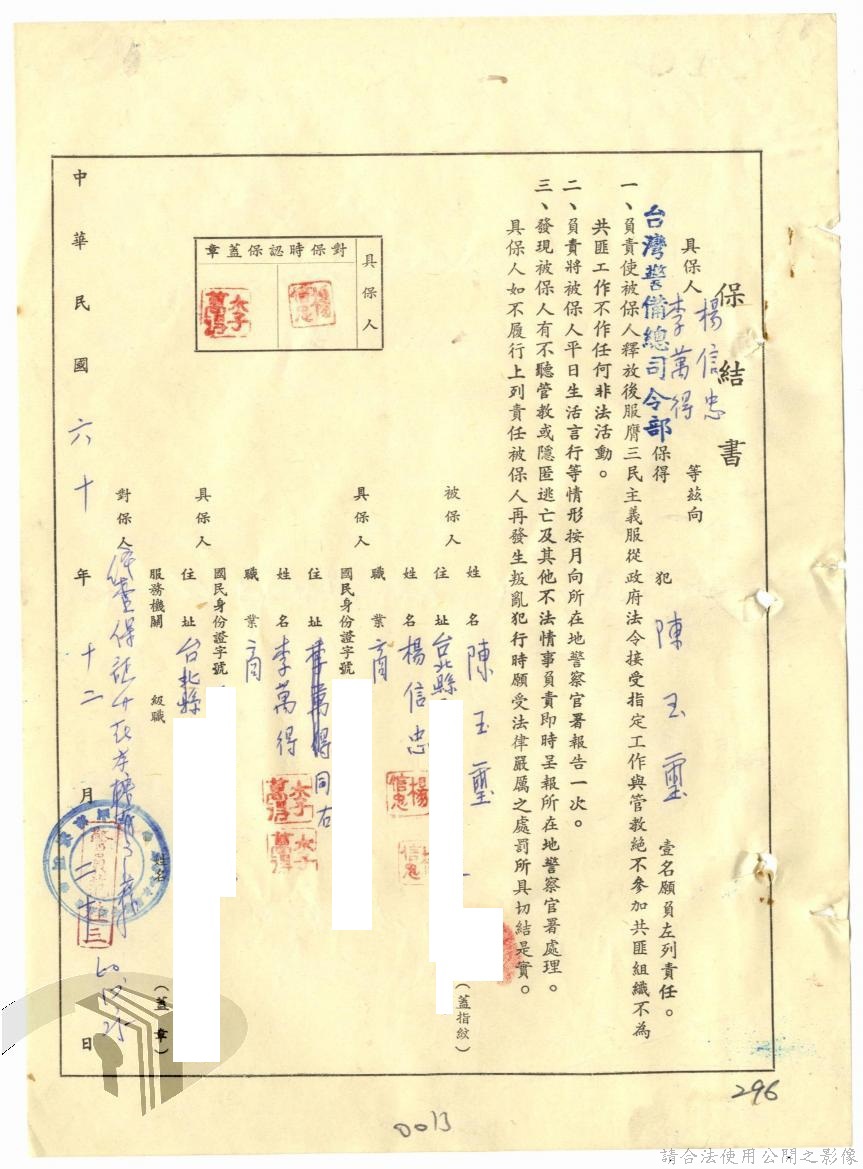 保結書
具保人 楊信忠 李萬得 等茲向
台灣警備總司令部 保得 犯 陳玉璽 壹名願負左列責任。
一、負責使被保人釋放後服膺三民主義服從政府法令接受指定工作與管教絕不參加共匪組織不為
共匪工作不作任何非法活動。
二、負責將被保人平日生活言行等情形按月向所在地警察官署報告一次。
三、發現被保人有不聽管教或隱匿逃亡及其他不法情事負責即時呈報所在地警察官署處理。
具保人如不履行上列責任被保人再發生叛亂犯行時願受法律嚴厲之處罰所具切結是實。
被保人 姓名 陳玉璽 (蓋指紋)
住址 台北縣
具保人 姓名 楊信忠
職業 商
國民身份證字號
住址 李萬得同右
具保人 姓名 李萬得
職業 商
國民身份證字號
住址 台北縣
對保人 服務機關 級職 姓名 (蓋章)
具保人
對保時認保蓋章
中華民國六十年十二月二十三日
60.12.25
296
0013
請合法使用公開之影像